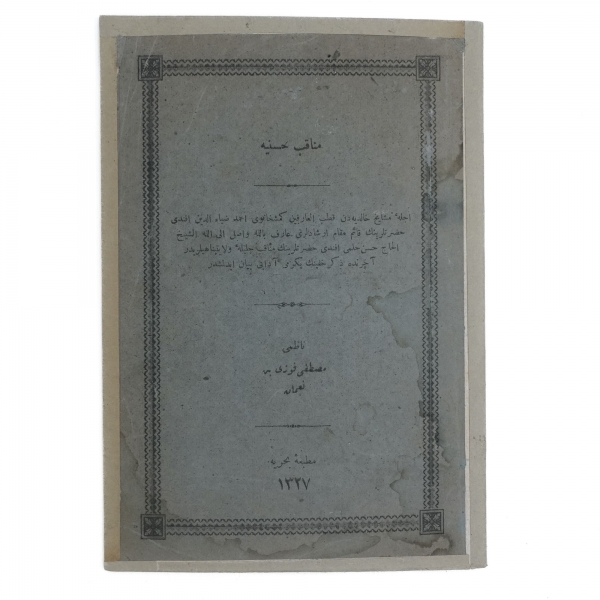 مناقب حسنیه
اجلهٔ مشایخ خالدیه‌دن قطب العارفین کمشخانوی احمد ضیاء الدین افندی
حضرتلرینك قائم مقام ارشادلری عارف بالله واصل الی الله الشیخ
الحاج حسن حلمی افندی حضرتلرینك مناقب جلیله ولایتپناهیلریدر
آخرنده ذکر خفینك یکرمی آدابی بیان ایدلمشدر
ناظمی
مصطفی فوزی بن
نعمان
مطبعهٔ بحریه
١٣٢٧